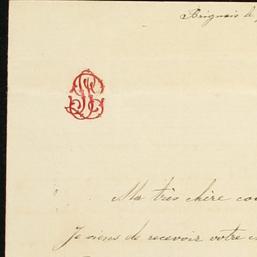 Brignais le
Ma très chère cou
Je viens de recevoir votre